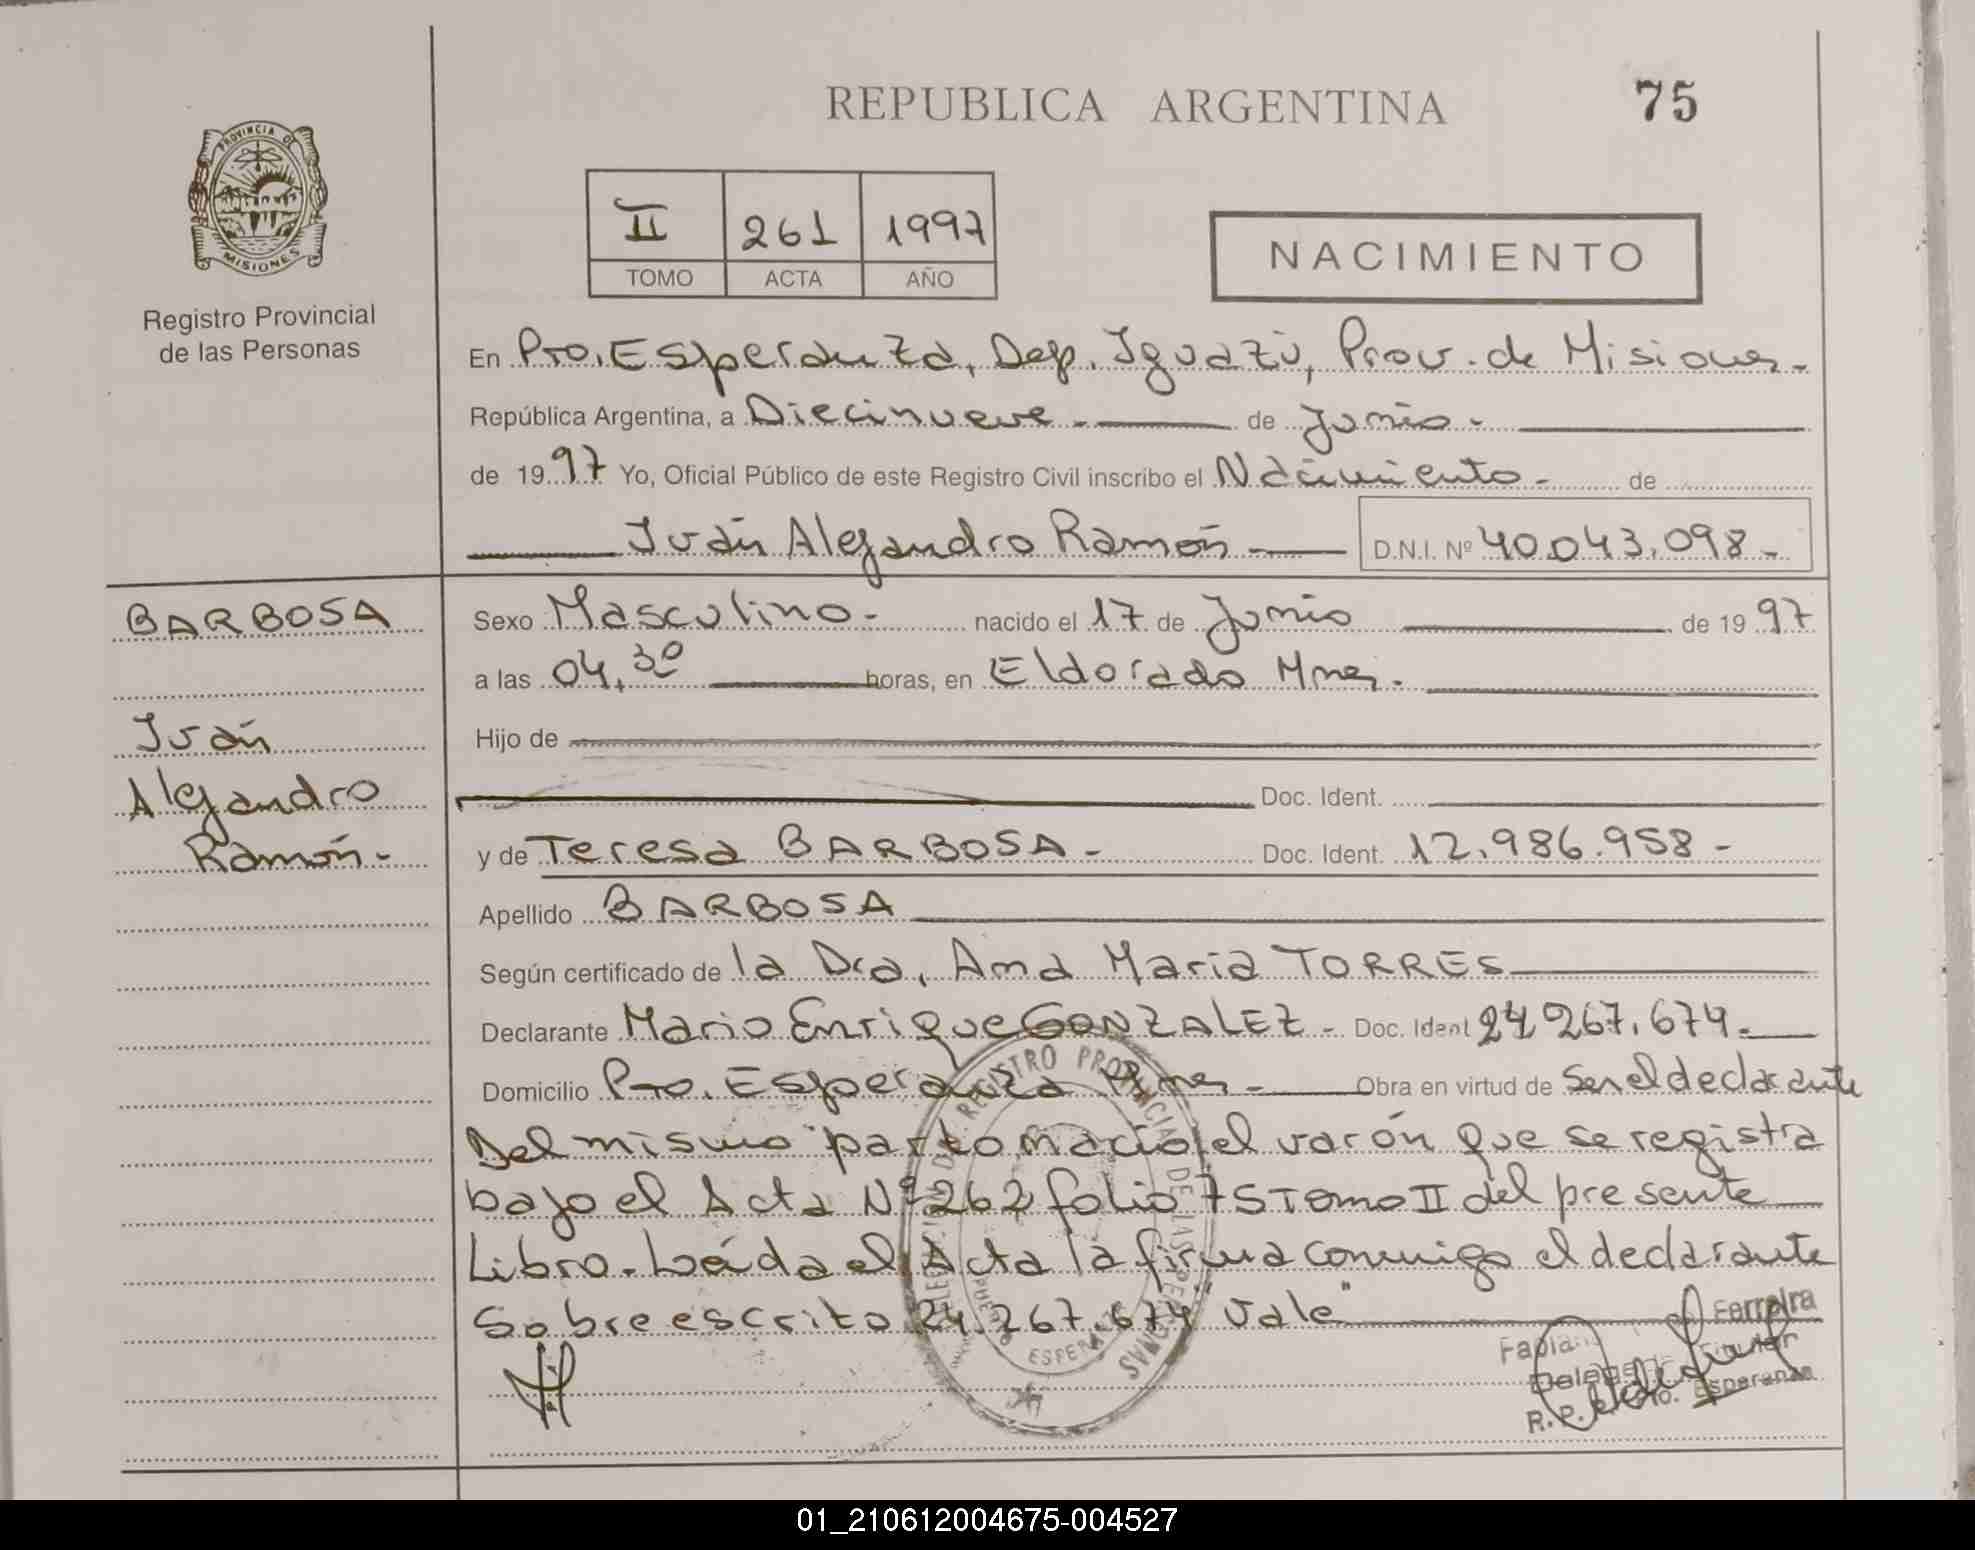 REPUBLICA ARGENTINA
75
PROVINCIA DE
MISIONES
Registro Provincial
de las Personas
II 261 1997
TOMO ACTA AÑO
NACIMIENTO
En Pto. Esperanza, Dep. Iguazú, Prov. de Misiones.-
República Argentina, a Diecinueve.- de Junio.-
de 1997 Yo, Oficial Público de este Registro Civil inscribo el Nacimiento.- de
Iván Alejandro Ramón
D.N.I. Nº 40.043.098.-
BARBOSA
Iván
Alejandro
Ramón.-
Sexo Masculino.- nacido el 17 de Junio de 1997
a las 04,30 horas, en Eldorado Mnes.-
Hijo de
Doc. Ident.
y de Teresa BARBOSA.- Doc. Ident. 12.986.958-
Apellido BARBOSA
Según certificado de la Dra, Ana Maria TORRES
Declarante Mario Enrique GONZALEZ.- Doc. Ident 24 267.674.-
Domicilio Pto. Esperanza Mnes.- Obra en virtud de Ser el declarante
Del mismo parto nació el varón que se registra
bajo el Acta Nº 262 folio 75 Tomo II del presente
Libro. Leída el Acta la firma conmigo el declarante
Sobre escrito 24.267.674 "Vale"
REGISTRO PROVINCIAL DE LAS PERSONAS
ESPERANZA
Ferreira
Titular
Esperanza
01_210612004675-004527